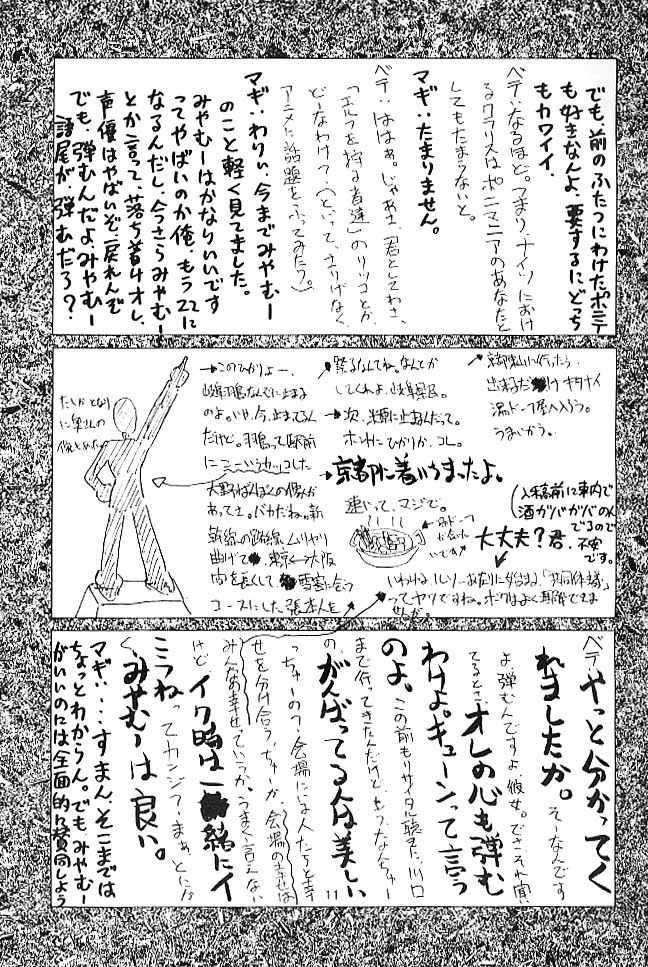 でも、前のふたつにわけたポニテ
も好きなんよ、要するにどっち
もカワイイ.
ベテ:なるほど。つまり、ナイツにおけ
るクラリスはポニマニアのあなたと
してもたまらないと。
マギ:たまりません。
ベテ:ははぁ。じゃあさ、君としてわさ、
「エルフを狩る者達」のリツコとか、
どーなわけ?(といって、さりげなく
アニメに話題をふってみたり。)
マギ:わりぃ、今までみやむー
のこと軽く見てました。
みやむーはかなりいいです
ってやばいのか俺、もう22に
なるんだし、今さらみやむー
とか言って、落ち着けオレ、
声優はやばいぞ、戻れんぞ
でも、弾むんだよみやむー
語尾が弾むだろ?
たしか となり
に
の像とかが
→このひかりよー、
岐阜羽島なんぞに止まる
のよ。いや、今、止まってるん
だけど。羽島って駅前
に
大野ばんぼくの像が
あってよ。バカだね。新
幹線の路線、ムリヤリ
曲げて 東京↔大阪
間を長くして、雪害に会う
コースにした張本人を
祭るなんてね。なんとか
してくれよ、岐阜県民。
→次、米原に止まるんだって。
ホントにひかりか、コレ。
→京都に着いちまったよ。
速いって、マジで。
京都に行ったら、
出来るだけキタナイ
湯ドーフ屋へ入ろう。
うまいから。
(入稿前に車内で
酒ガバガバのん
でるので
不安
です。
大丈夫?君、
いわゆる ルソーあたりに始まる、「共同体域」
ってヤツですね。ボクはよく理解できま
せんが。
ベテ:やっと分かってく
れましたか。そーなんです
よ、弾むんですよ、彼女。でさ、それ聞い
てるとさ、オレの心も弾む
わけよ。キューンって言う
のよ、この前もリサイタル聴きに川口
まで行ってきたんだけど、もうなんちゅー
の、がんばってる人は美しい
っちゅーの?会場にいる人たちと幸
せを分け合う、ちゅーか、会場の幸せは
みんなの幸せっていうか、うまく言えない
けど、イク時は一緒にイ
こうねってカンジ?まぁ、とにか
く、みやむーは良い。
マギ:...すまん、そこまでは
ちょっとわからん。でもみやむー
がいいのには全面的に賛同しよう